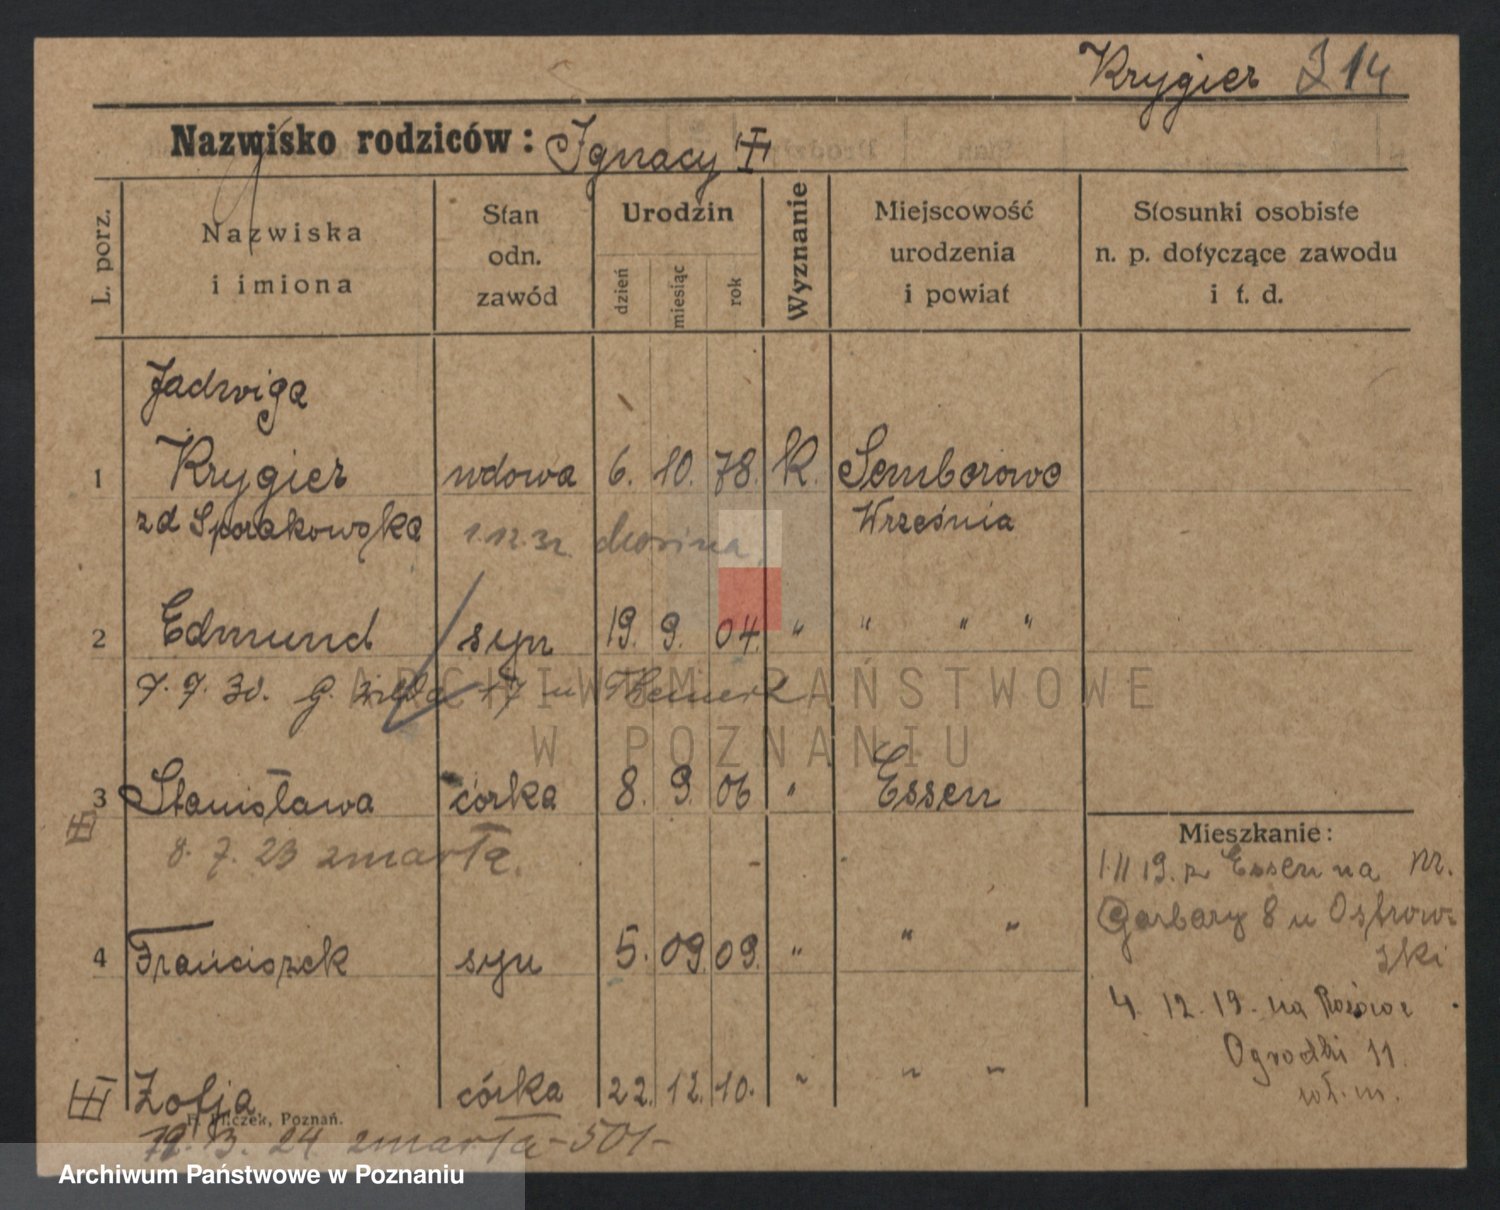 Krygier J 14
Nazwisko rodziców: Ignacy
L. porz.
Nazwiska i imiona
Stan odn. zawód
Urodzin
dzień miesiąc rok
Wyznanie
Miejscowość urodzenia i powiat
Stosunki osobiste n. p. dotyczące zawodu i t. d.
Jadwiga
1 Krygier wdowa 6. 10. 78. K. Semborowo
zd Sporakowska 1.12.32. Września
2 Edmund syn 19. 9. 04. " " " "
7. 7. 30. G. 17 u
ARCHIWUM PAŃSTWOWE
W POZNANIU
3 Stanisława córka 8. 9. 06 " Essen
8. 7. 23 zmarła.
Mieszkanie:
1 11 19. z Essen na nr.
Garbary 8 u Ostrow-
ski
4 Franciszek syn 5. 09. 09. " " "
4. 12. 19. na
Ogrodki 11.
Zofja córka 22. 12. 10. " " "
F. Pilczek, Poznań.
12. 3. 24 zmarła - 501-
Archiwum Państwowe w Poznaniu